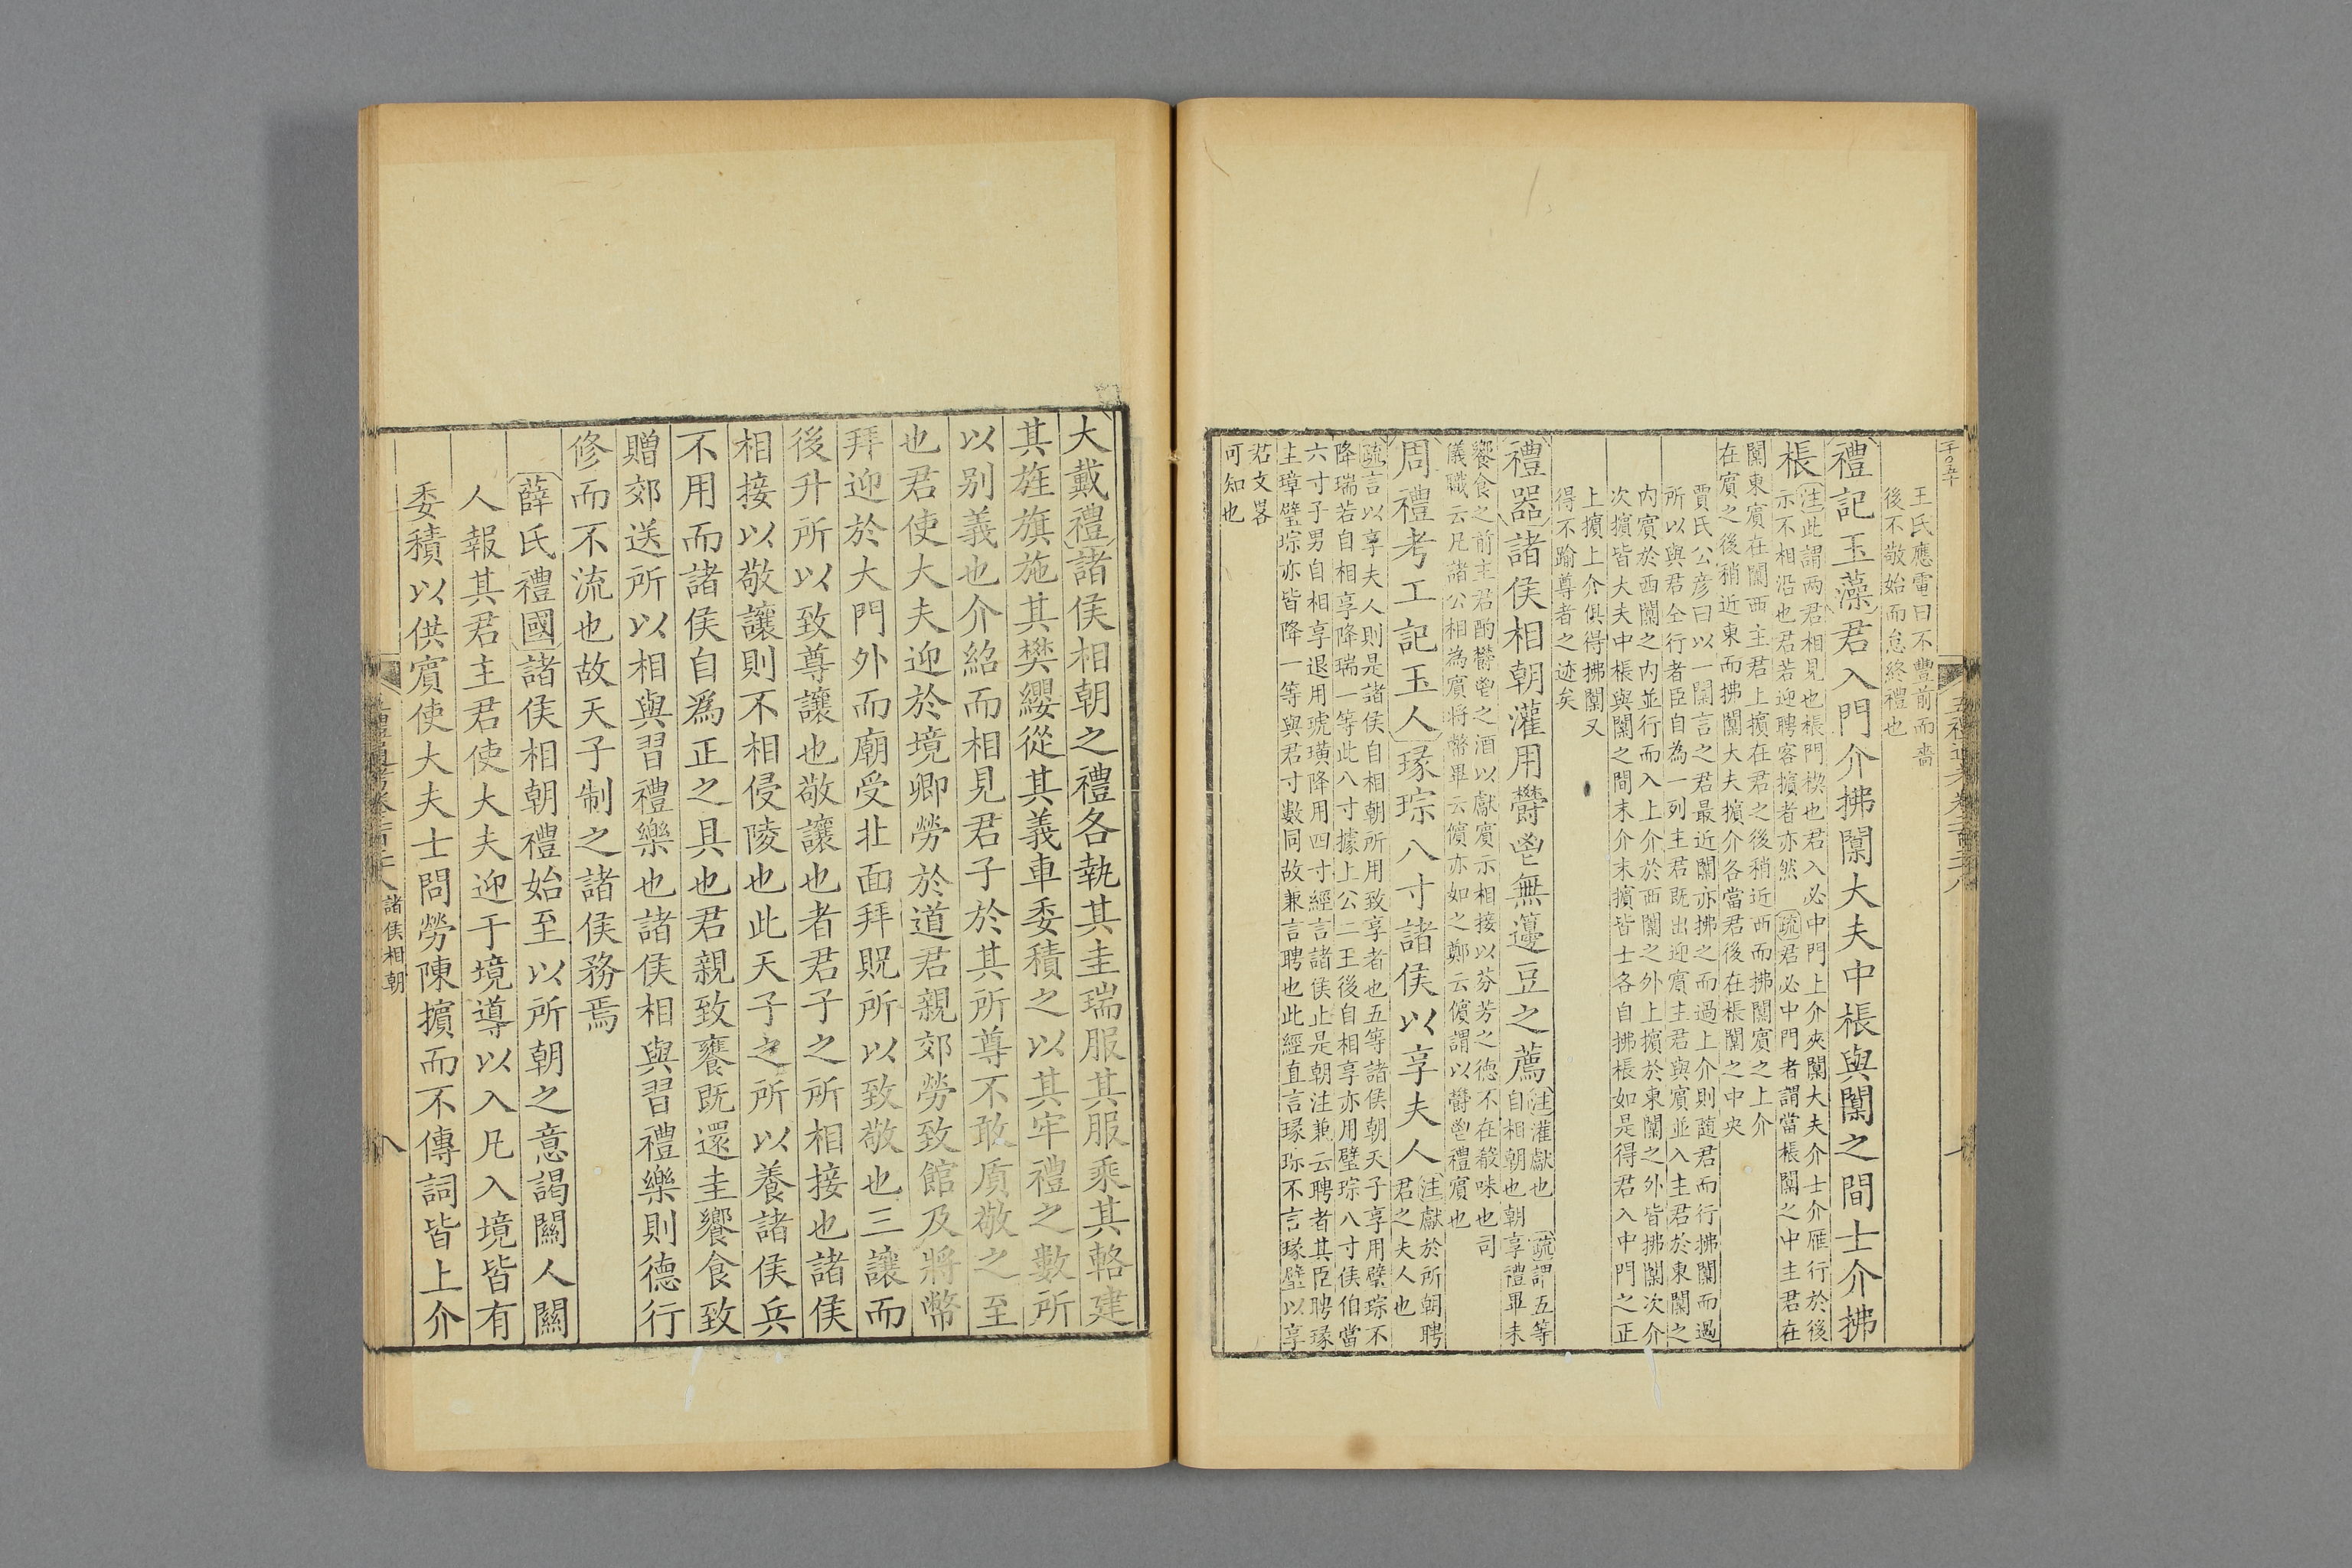 王氏應電曰不豐前而嗇
後不敬始而怠終禮也
禮記玉藻君入門介拂闑大夫中棖與闑之間士介拂
棖
注此謂兩君相見也棖門楔也君入必中門上介夾闑大夫介士介雁行於後
示不相沿也君若迎聘客擯者亦然 疏君必中門者謂當棖闑之中主君在
闑東賓在闑西主君上擯在君之後稍近西而拂闑賓之上介
在賓之後稍近東而拂闑大夫擯介各當君後在棖闑之中央
賈氏公彥曰以一闑言之君最近闑亦拂之而過上介則隨君而行拂闑而過
所以與君仝行者臣自為一列主君既出迎賓主君與賓並入主君於東闑之
内賓於西闑之内並行而入上介於西闑之外上擯於東闑之外皆拂闑次介
次擯皆大夫中棖與闑之間末介末擯皆士各自拂棖如是得君入中門之正
上擯上介俱得拂闑又
得不踰尊者之迹矣
禮器諸侯相朝灌用鬱鬯無籩豆之薦
注灌獻也 疏謂五等
自相朝也朝享禮畢未
饗食之前主君酌鬱鬯之酒以獻賓示相接以芬芳之德不在殽味也司
儀職云凡諸公相為賓將幣畢云儐亦如之鄭云儐謂以鬱鬯禮賓也
周禮考工記玉人瑑琮八寸諸侯以享夫人
注獻於所朝聘
君之夫人也
疏言以享夫人則是諸侯自相朝所用致享者也五等諸侯朝天子享用璧琮不
降瑞若自相享降瑞一等此八寸據上公二王後自相享亦用璧琮八寸侯伯當
六寸子男自相享退用琥璜降用四寸經言諸侯止是朝注兼云聘者其臣聘瑑
圭璋璧琮亦皆降一等與君寸數同故兼言聘也此經直言瑑琮不言瑑璧以享
君文畧
可知也
大戴禮諸侯相朝之禮各執其圭瑞服其服乘其輅建
其旌旗施其樊纓從其義車委積之以其牢禮之數所
以别義也介紹而相見君子於其所尊不敢質敬之至
也君使大夫迎於境卿勞於道君親郊勞致館及將幣
拜迎於大門外而廟受北面拜貺所以致敬也三讓而
後升所以致尊讓也敬讓也者君子之所相接也諸侯
相接以敬讓則不相侵陵也此天子之所以養諸侯兵
不用而諸侯自爲正之具也君親致饔既還圭饗食致
贈郊送所以相與習禮樂也諸侯相與習禮樂則德行
修而不流也故天子制之諸侯務焉
薛氏禮國諸侯相朝禮始至以所朝之意謁關人關
人報其君主君使大夫迎于境導以入凡入境皆有
委積以供賓使大夫士問勞陳擯而不傳詞皆上介
諸侯相朝
八